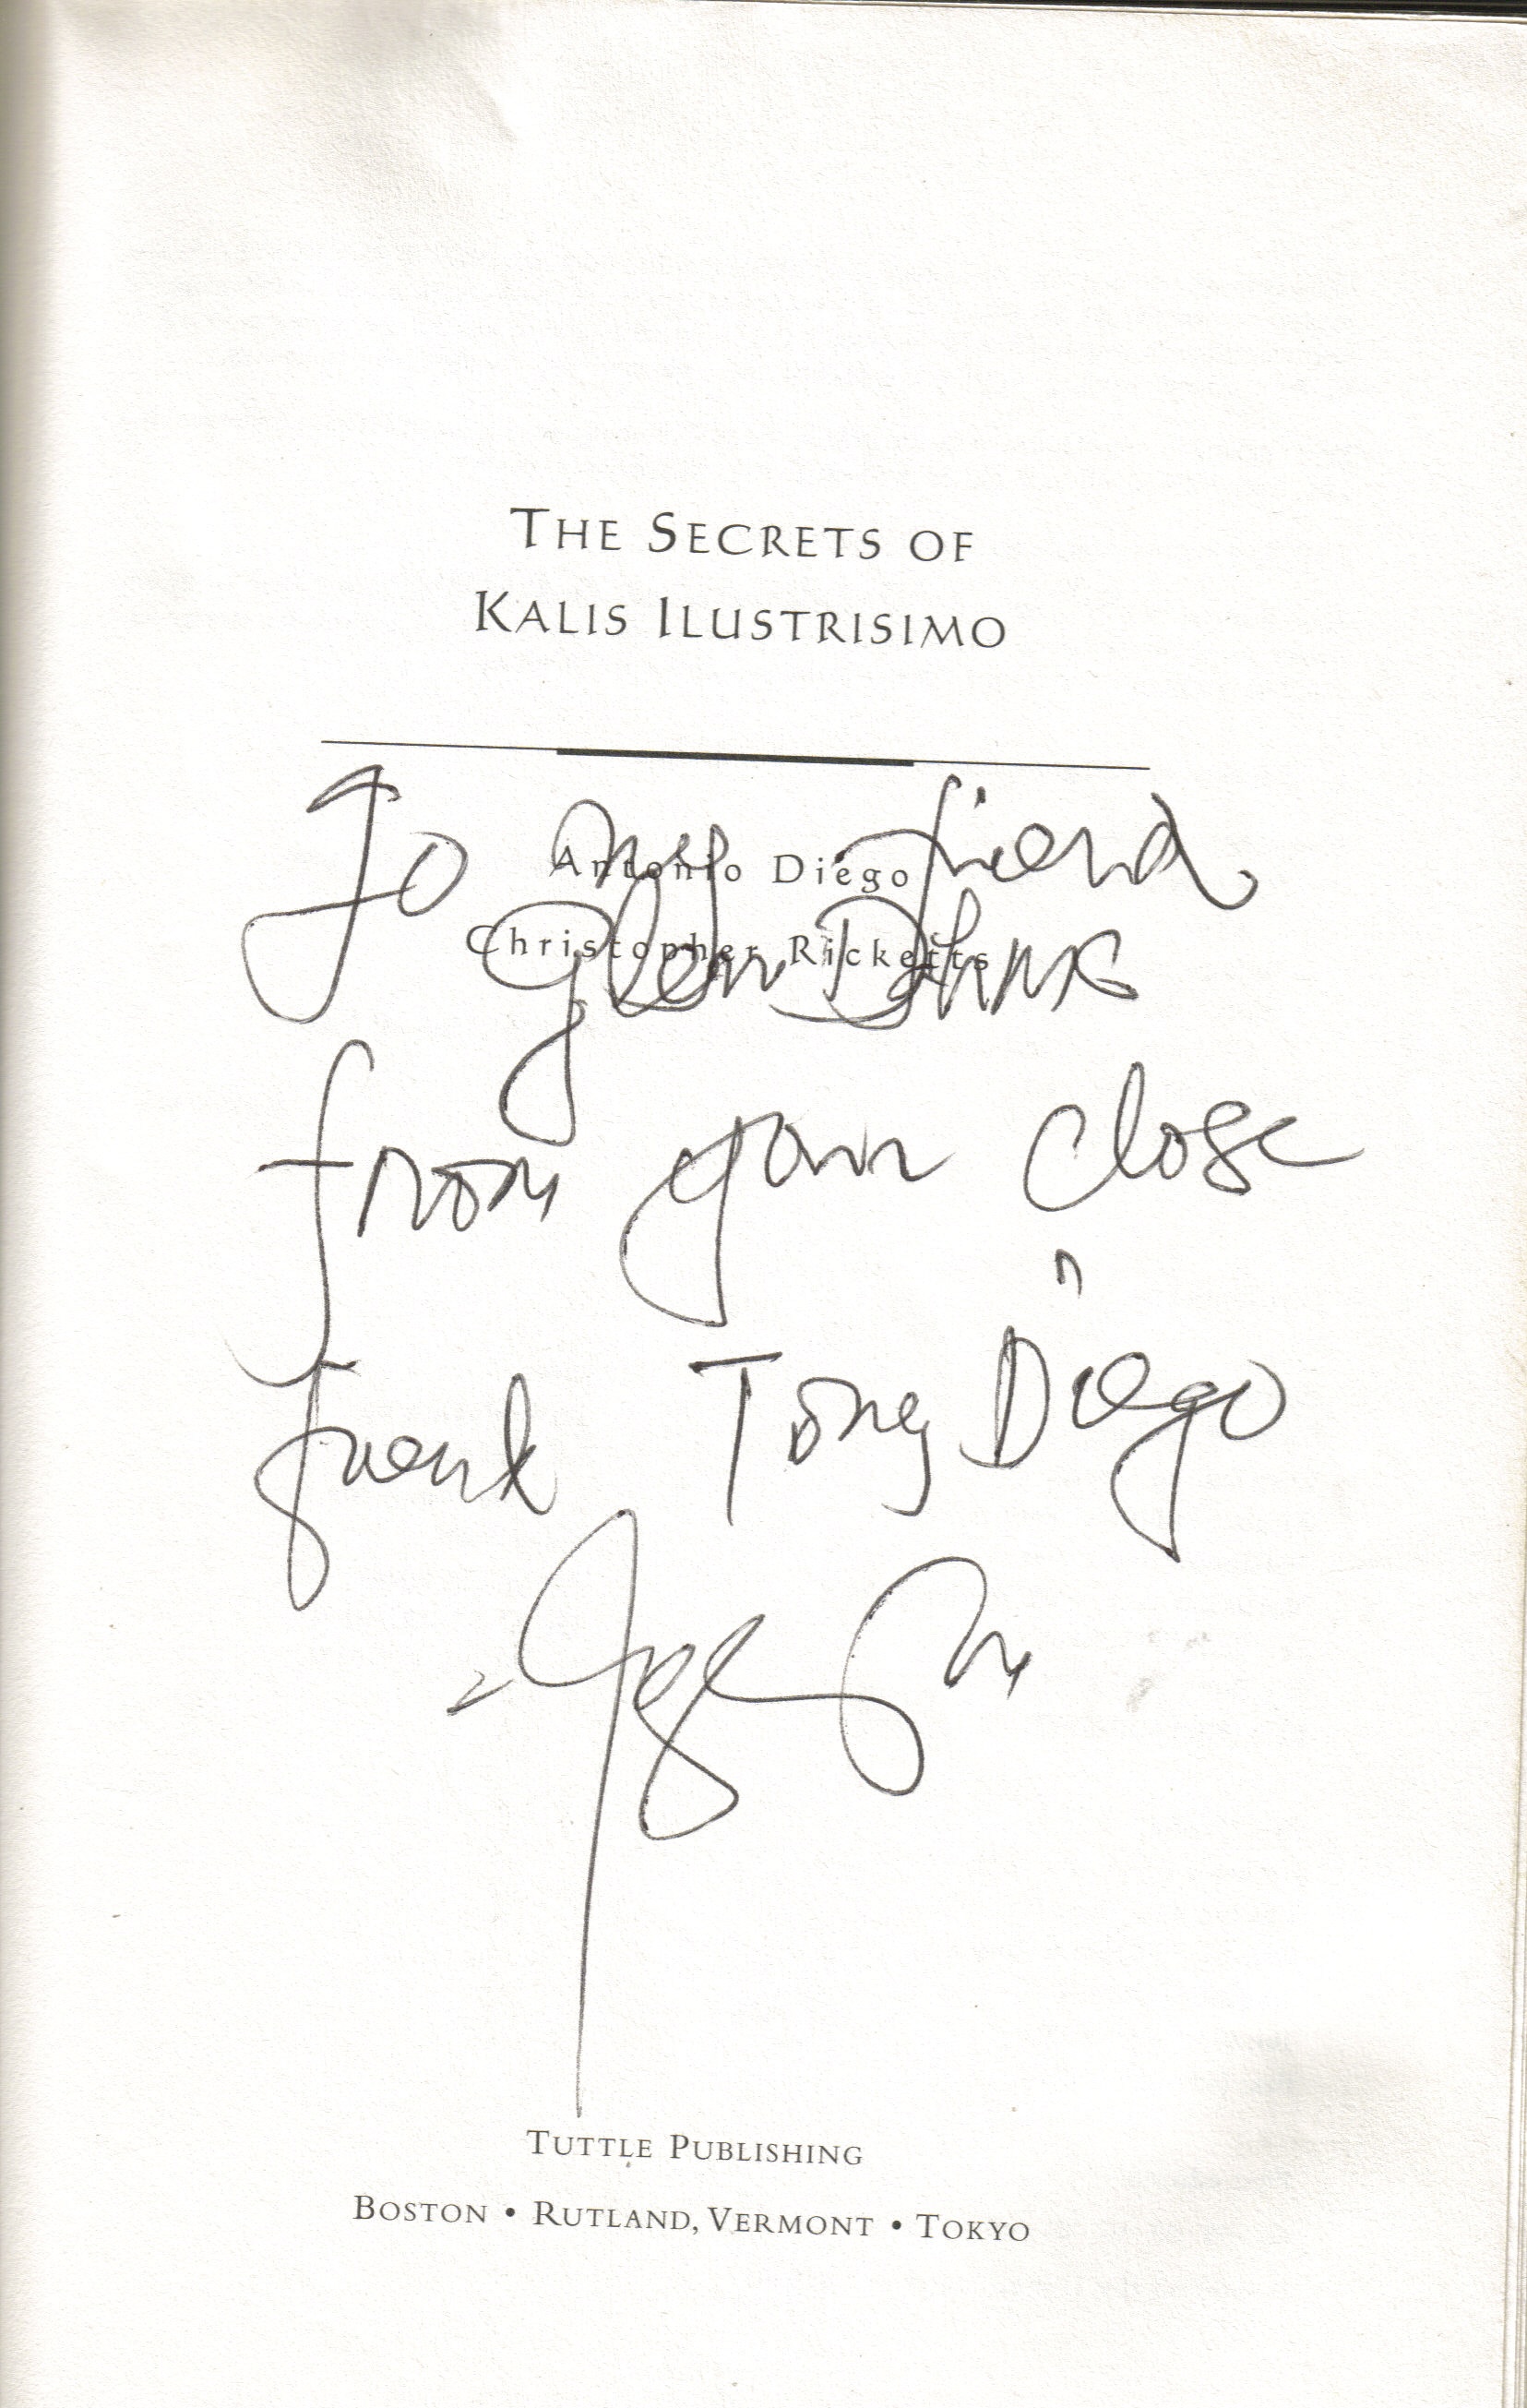 THE SECRETS OF
KALIS ILUSTRISIMO
To my friend
Antonio Diego
Christopher Ricketts
Glen
from your close
friend Tony Diego
TUTTLE PUBLISHING
BOSTON • RUTLAND, VERMONT • TOKYO